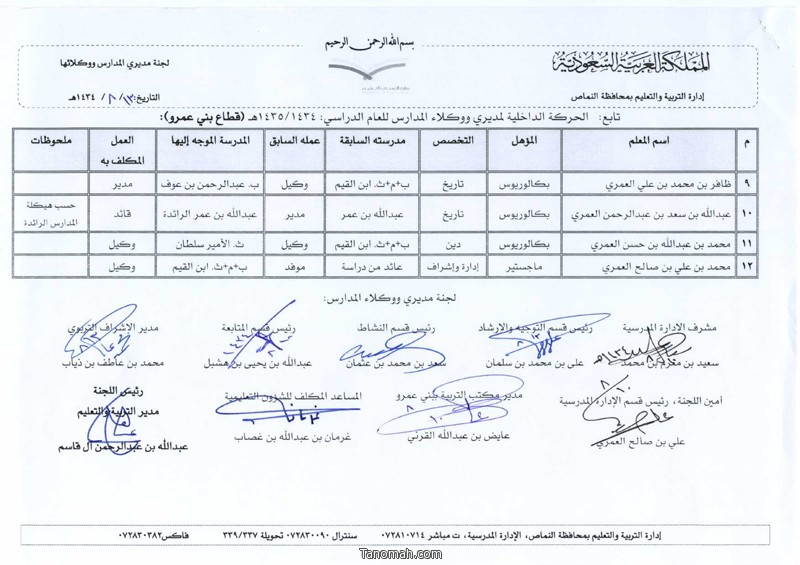 بسم الله الرحمن الرحيم
المملكة العربية السعودية
لجنة مديري المدارس ووكلائها
إدارة التربية والتعليم بمحافظة النماص
التاريخ: ١٣ / ٨ / ١٤٣٤هـ
تابع: الحركة الداخلية لمديري ووكلاء المدارس للعام الدراسي: ١٤٣٥/١٤٣٤هـ (قطاع بني عمرو):
م اسم المعلم المؤهل التخصص مدرسته السابقة عمله السابق المدرسة الموجه إليها العمل المكلف به ملحوظات
٩ ظافر بن محمد بن علي العمري بكالوريوس تاريخ ب+م+ث. ابن القيم وكيل ب. عبدالرحمن بن عوف مدير
١٠ عبدالله بن سعد بن عبدالرحمن العمري بكالوريوس تاريخ عبدالله بن عمر مدير عبدالله بن عمر الرائدة قائد حسب هيكلة المدارس الرائدة
١١ محمد بن عبدالله بن حسن العمري بكالوريوس دين ب+م+ث. ابن القيم وكيل ث. الأمير سلطان وكيل
١٢ محمد بن علي بن صالح العمري ماجستير إدارة وإشراف عائد من دراسة موفد ب+م+ث. ابن القيم وكيل
لجنة مديري ووكلاء المدارس:
مشرف الإدارة المدرسية رئيس قسم التوجيه والإرشاد رئيس قسم النشاط رئيس قسم المتابعة مدير الإشراف التربوي
سعيد بن مغرم بن محمد علي بن محمد بن سلمان سعد بن محمد بن عثمان عبدالله بن يحيى بن هشبل محمد بن عاطف بن ذياب
أمين اللجنة، رئيس قسم الإدارة المدرسية مدير مكتب التربية ببني عمرو المساعد المكلف للشؤون التعليمية رئيس اللجنة
مدير التربية والتعليم
علي بن صالح العمري عايض بن عبدالله القرني غرمان بن عبدالله بن غصاب عبدالله بن عبدالرحمن آل قاسم
إدارة التربية والتعليم بمحافظة النماص، الإدارة المدرسية، ت مباشر ٠٧٢٨١٠٧١٤ سنترال ٠٧٢٨٣٠٠٩٠ تحويلة ٣٣٩/٣٣٧ فاكس٠٧٢٨٣٠٣٨٢
Tanomah.com